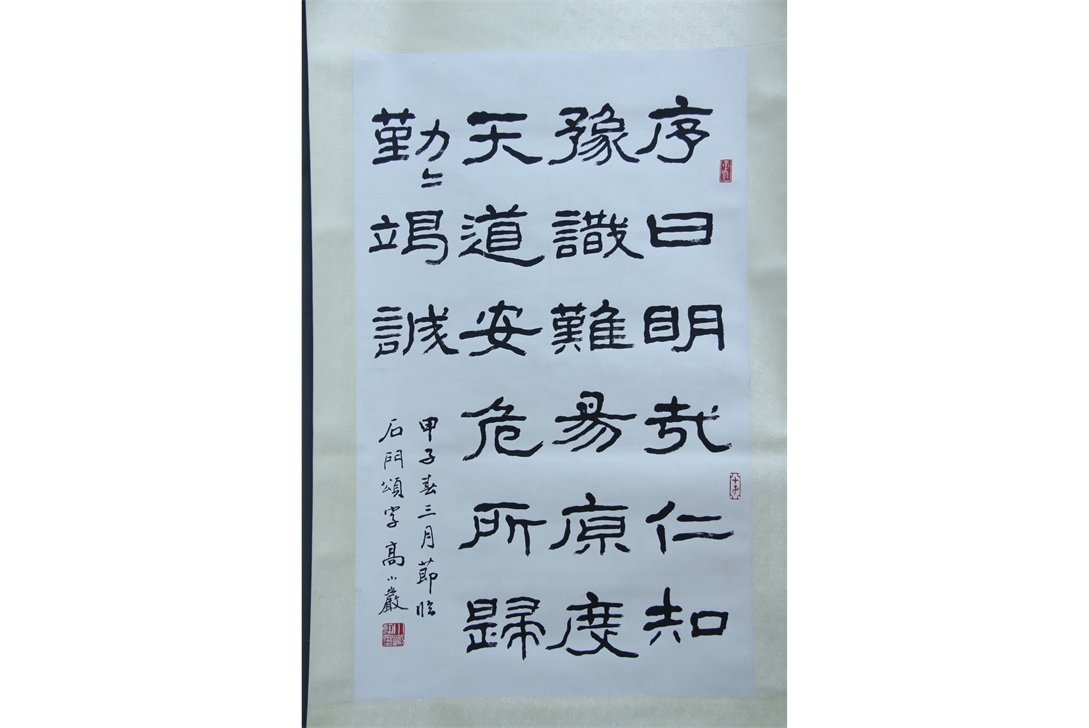 序曰明哉仁知
豫識難易原度
天道安危所歸
勤〻竭誠
甲子春三月節臨
石門頌字 高小巖